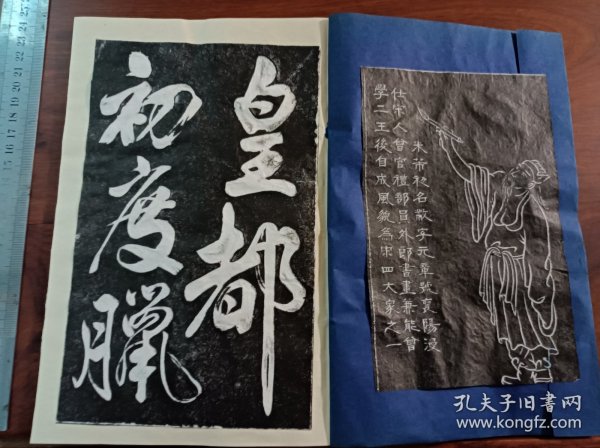 皇都
初度臘
米芾初名黻字元章號襄陽漫
仕宋人曾官禮部員外郎書畫兼能曾
學二王後自成風貌為宋四大家之一
孔夫子旧书网
www.kongfz.com